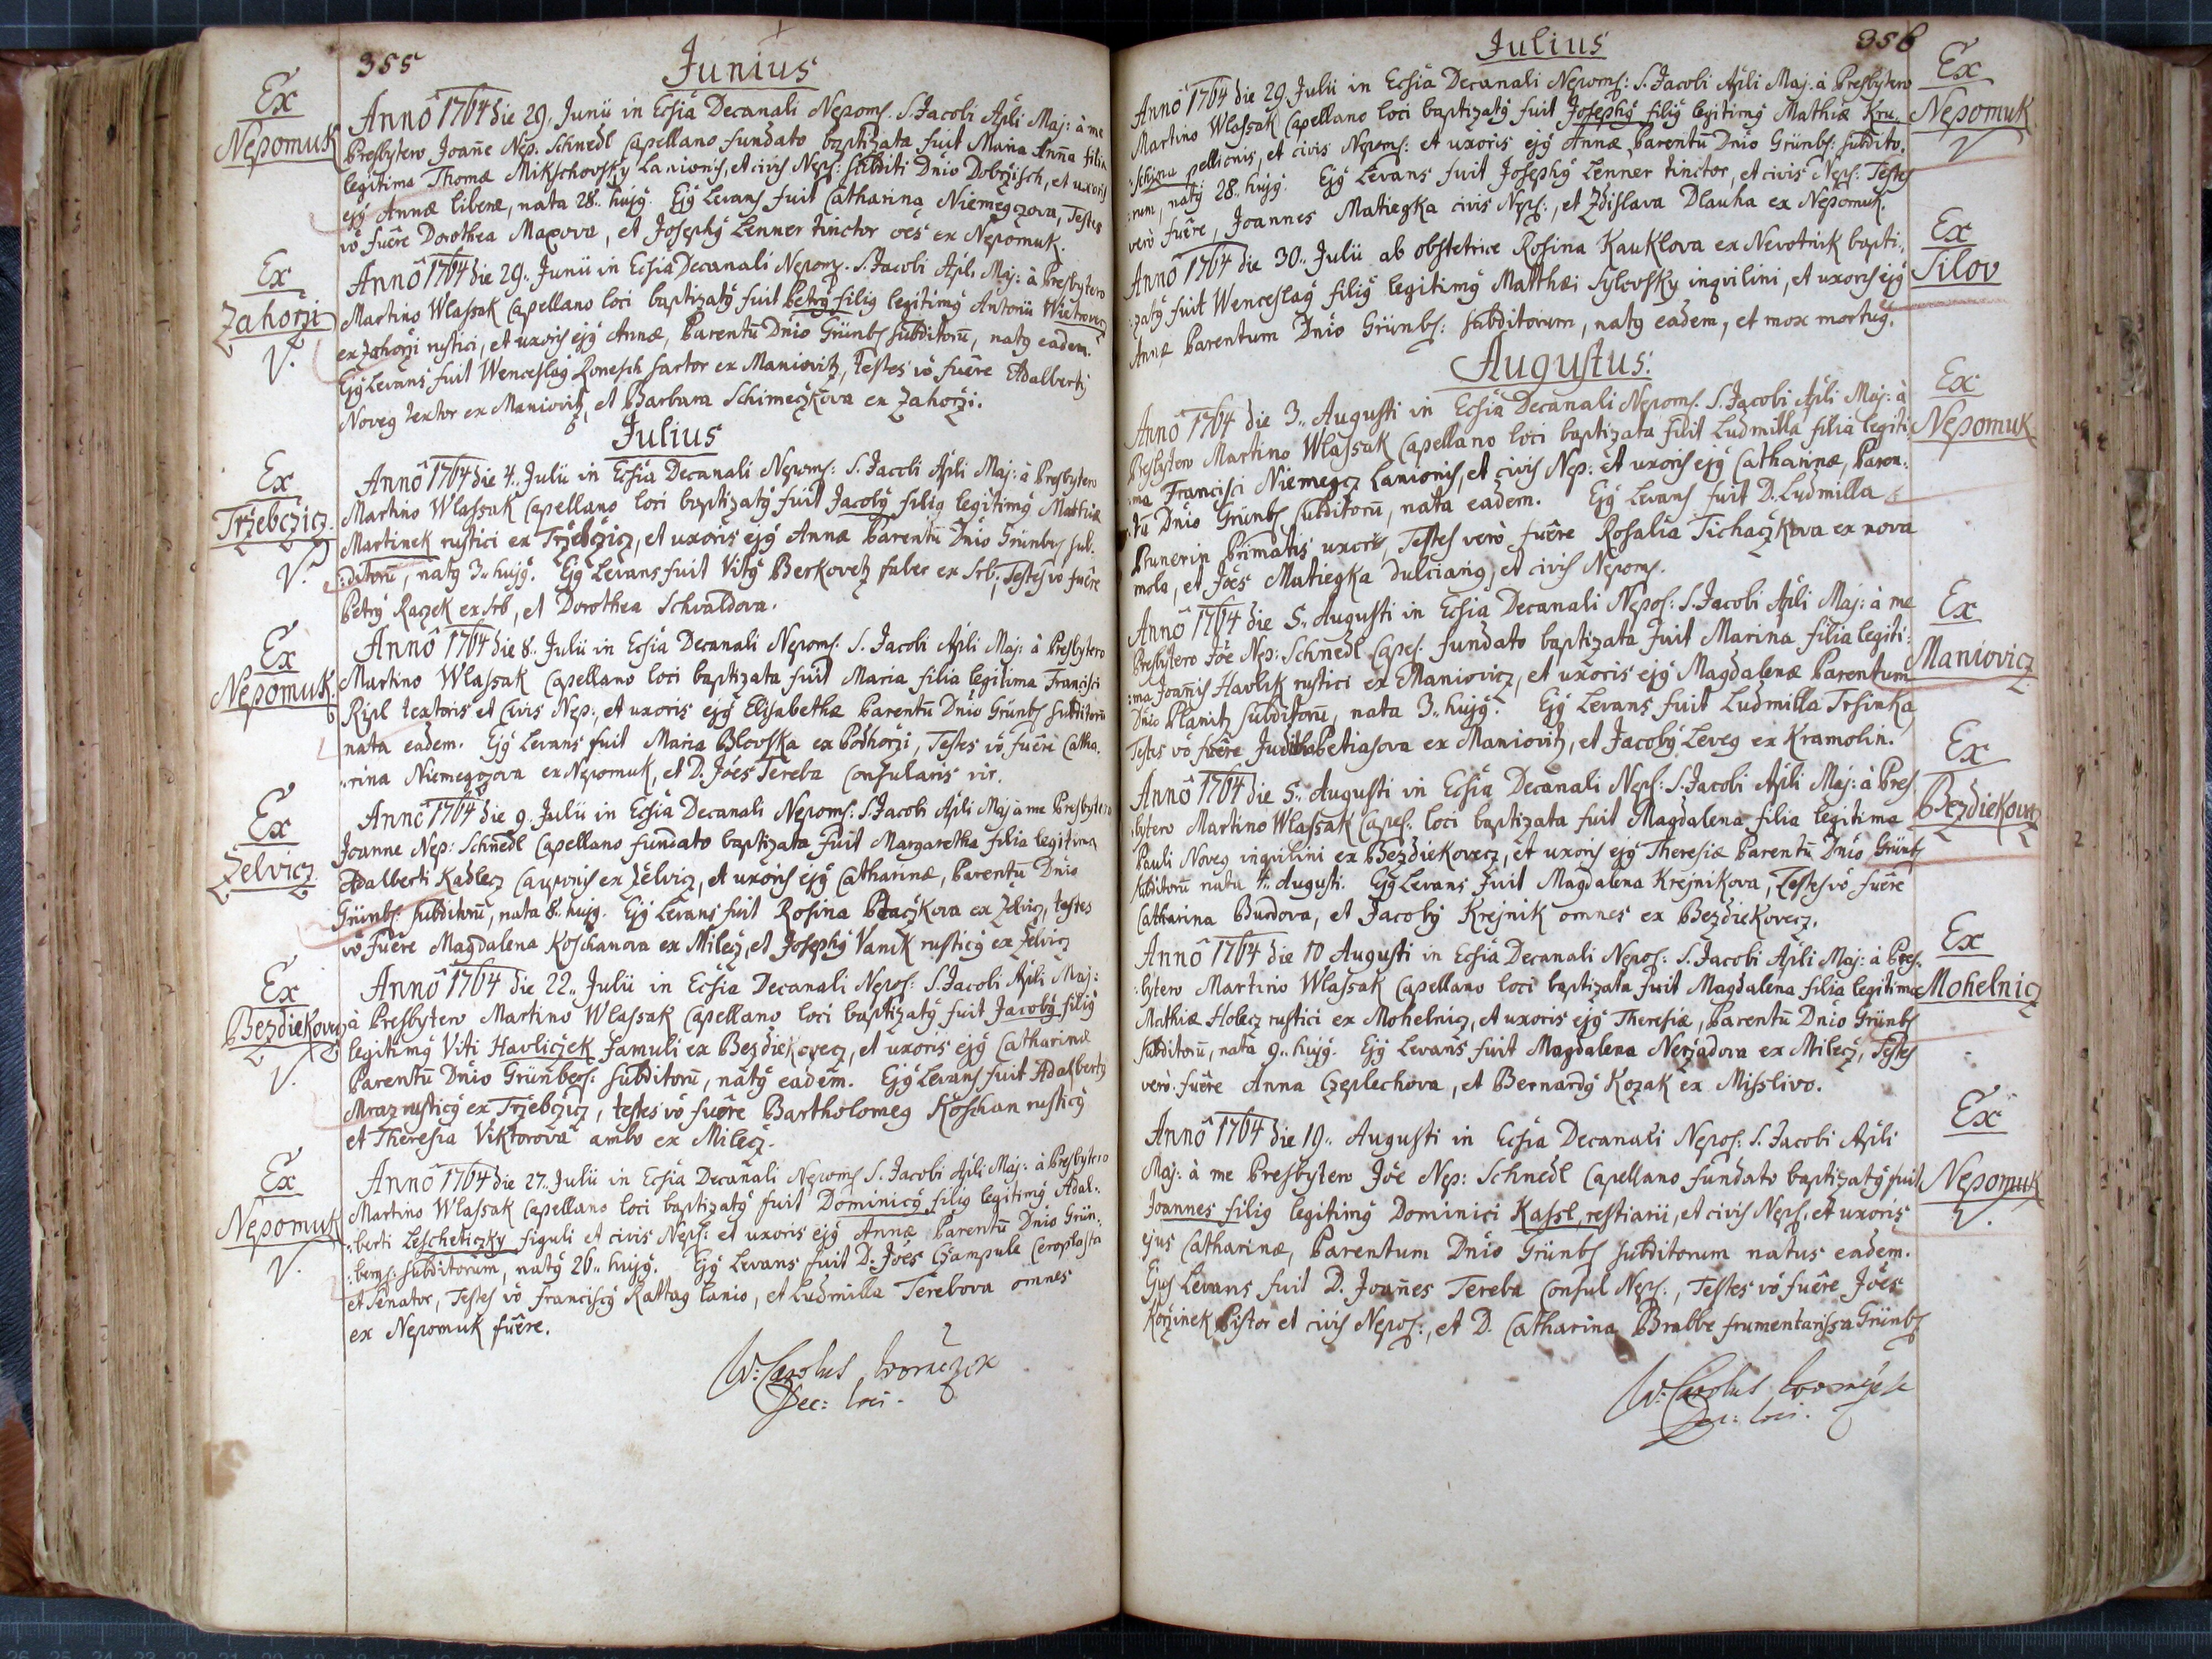 355
Junius
Ex
Nepomuk
Annô 1764 die 29. Junii in Ecsia Decanali Nepoms. S. Jacobi Apli Maj: à me
Presbytero Joanne Nep. Schnedl Capellano fundato baptizata fuit Maria Anna filia
legitima Thomæ Mikschovsky Lanionis, et civis Nep: subditi Dnio Dobrzisch, et uxoris
ejg Annæ liberæ, nata 28.. hujg. Ejg Levans fuit Catharina Niemegczova, Testes
vô fuêre Dorothea Maxova, et Josephg Lenner tinctor oês ex Nepomuk.
Ex
Zahorzi
V.
Annô 1764 die 29.. Junii in Ecsia Decanali Nepom. S. Jacobi Apli Maj: à Presbytero
Martino Wlassak Capellano loci baptizatg fuit Petrg filig legitimg Antonii
ex Zahorzi rustici, et uxoris ejg Annæ, Parentū Dnio Grünbs subditorū, natg eadem.
Ejg Levans fuit Wenceslag Ronesch sartor ex Maniovitz, testes vô fuêre Adalbertg
Noveg textor ex Maniovitz, et Barbara Schimeczkova ex Zahorzi.
Julius
Ex
Trzebczicz
V.
Annô 1764 die 4.. Julii in Ecsia Decanali Nepoms: S. Jacobi Apli Maj: à Presbytero
Martino Wlassak Capellano loci baptizatg fuit Jacobg filig legitimg Mathiæ
Martinek rustici ex Trzebczicz, et uxoris ejg Annæ Parentū Dnio Grünbs sub:
:ditorū, natg 3.. hujg. Ejg Levans fuit Vitg Berkovetz faber ex Srb, Testes vô fuêre
Petrg Raczek ex Srb, et Dorothea Schvaldova.
Ex
Nepomuk.
Annô 1764 die 8.. Julii in Ecsia Decanali Nepoms. S. Jacobi Apli Maj: à Presbytero
Martino Wlassak Capellano loci baptizata fuit Maria filia legitima Francisci
Ripl textoris et Civis Nep:, et uxoris ejg Elisabethæ Parentū Dnio Grünbs subditorū
nata eadem. Ejg Levans fuit Maria Blovska ex Podhorzi, Testes vô fuêre Catha:
:rina Niemegczova ex Nepomuk, et D. Jôes Tereba Consularis vir.
Ex
Zelvicz
Annô 1764 die 9. Julii in Ecsia Decanali Nepoms: S. Jacobi Apli Maj à me Presbytero
Joanne Nep: Schnedl Capellano fundato baptizata fuit Margaretha filia legitima
Adalberti Kadlecz Cauponis ex Zelvicz, et uxoris ejg Catharinæ, Parentū Dnio
Grünbs: subditorū, nata 8.. hujg. Ejg Levans fuit Rosina Ptaczkova ex Zelvicz, testes
vô fuêre Magdalena Koschanova ex Milecz, et Josephg Vanik rusticg ex Zelvicz
Ex
Bezdiekovecz
V.
Annô 1764 die 22.. Julii in Ecsia Decanali Nepos: S. Jacobi Apli Maj:
à Presbytero Martino Wlassak Capellano loci baptizatg fuit Jacobg filig
legitimg Viti Havliczek famuli ex Bezdiekovecz, et uxoris ejg Catharinæ
Parentū Dnio Grünbers: subditorū, natg eadem. Ejg Levans fuit Adalbertg
Mraz rusticg ex Trzebczicz, testes vô fuêre Bartholomeg Koschan rusticg
et Theresia Viktorova ambo ex Milecz.
Ex
Nepomuk
V.
Annô 1764 die 27.. Julii in Ecsia Decanali Nepoms S. Jacobi Apli Maj: à Presbytero
Martino Wlassak Capellano loci baptizatg fuit Dominicg filig legitimg Adal:
:berti Lescheticzky figuli et civis Neps: et uxoris ejg Annæ Parentū Dnio Grün:
:bergs: subditorum, natg 26.. hujg. Ejg Levans fuit D. Jôes Czampule Ceroplasta
et Senator, Testes vô Franciscg Rattag lanio, et Ludmilla Terebova omnes
ex Nepomuk fuêre.
W: Carolus
Dec: loci.
Julius
356
Annô 1764 die 29. Julii in Ecsia Decanali Nepoms: S. Jacobi Apli Maj: à Presbytero
Martino Wlassak Capellano loci baptizatg fuit Josephg filig legitimg Mathiæ Kru:
:schina pellionis, et civis Nepoms: et uxoris ejg Annæ, Parentū Dnio Grünbs: subdito:
:rum, natg 28.. hujg. Ejg Levans fuit Josephg Lenner tinctor, et civis Neps: Testes
verò fuêre, Joannes Matiegka civis Neps:, et Zdislava Dlauha ex Nepomuk.
Ex
Nepomuk
V
Annô 1764 die 30.. Julii ab obstetrice Rosina Kauklova ex Nevotnik bapti:
:zatg fuit Wenceslag filig legitimg Matthæi Sylovsky inqvilini, et uxoris ejg
Annæ Parentum Dnio Grünbs: subditorum, natg eadem, et mox mortug.
Ex
Tilov
Augustus.
Annô 1764 die 3.. Augusti in Ecsia Decanali Nepoms. S. Jacobi Apli Maj: à
Presbytero Martino Wlassak Capellano loci baptizata fuit Ludmilla filia legiti:
:ma Francisci Niemegcz Lanionis, et civis Nep: et uxoris ejg Catharinæ, Paren:
:tū Dnio Grünbs subditorū, nata eadem. Ejg Levans fuit D. Ludmilla
Prunerin Primatis uxoris, Testes verò fuêre Rosalia Tichaczkova ex nova
mola, et Jôes Matiegka dulciarig, et civis Nepoms.
Ex
Nepomuk
Annô 1764 die 5.. Augusti in Ecsia Decanali Nepos: S. Jacobi Apli Maj: à me
Presbytero Jôe Nep: Schnedl Capes. fundato baptizata fuit Marina filia legiti:
:ma Joannis Havlik rustici ex Maniovicz, et uxoris ejg Magdalenæ Parentum
Dnio Planitz subditorū, nata 3.. hujg. Ejg Levans fuit Ludmilla Trsinka,
Testes vô fuêre Juditha Petiasova ex Maniovitz, et Jacobg Leveg ex Kramolin.
Ex
Maniovicz
Annô 1764 die 5.. Augusti in Ecsia Decanali Neps: S. Jacobi Apli Maj: à Pres:
:bytero Martino Wlassak Capes. loci baptizata fuit Magdalena filia legitima
Pauli Noveg inqvilini ex Bezdiekovecz, et uxoris ejg Theresiæ Parentū Dnio Grünbs
subditorū nata 4.. Augusti. Ejg Levans fuit Magdalena Krejnikova, Testes vô fuêre
Catharina Burdova, et Jacobg Krejnik omnes ex Bezdiekovecz.
Ex
Bezdiekovecz
Annô 1764 die 10 Augusti in Ecsia Decanali Nepos: S. Jacobi Apli Maj: à Pres:
:bytero Martino Wlassak Capellano loci baptizata fuit Magdalena filia legitima
Mathiæ Holecz rustici ex Mohelnicz, et uxoris ejg Theresiæ, Parentū Dnio Grünbs
subditorū, nata 9.. hujg. Ejg Levans fuit Magdalena Nerzadova ex Milecz, Testes
verò fuêre Anna Czeplechova, et Bernardg Kozak ex Misslivo.
Ex
Mohelnicz
Annô 1764 die 19.. Augusti in Ecsia Decanali Nepos: S. Jacobi Apli
Maj: à me Presbytero Jôe Nep: Schnedl Capellano fundato baptizatg fuit
Joannes filig legitimg Dominici Kassl, restiarii, et civis Neps. et uxoris
ejus Catharinæ, Parentum Dnio Grünbs subditorum natus eadem.
Ejus Levans fuit D. Joannes Tereba Consul Neps:, Testes vô fuêre Jôes
Korzinek Pistor et civis Nepos:, et D. Catharina Brabbe frumentarissa Grünbs
Ex
Nepomuk
V.
W: Carolus
Dec: loci.